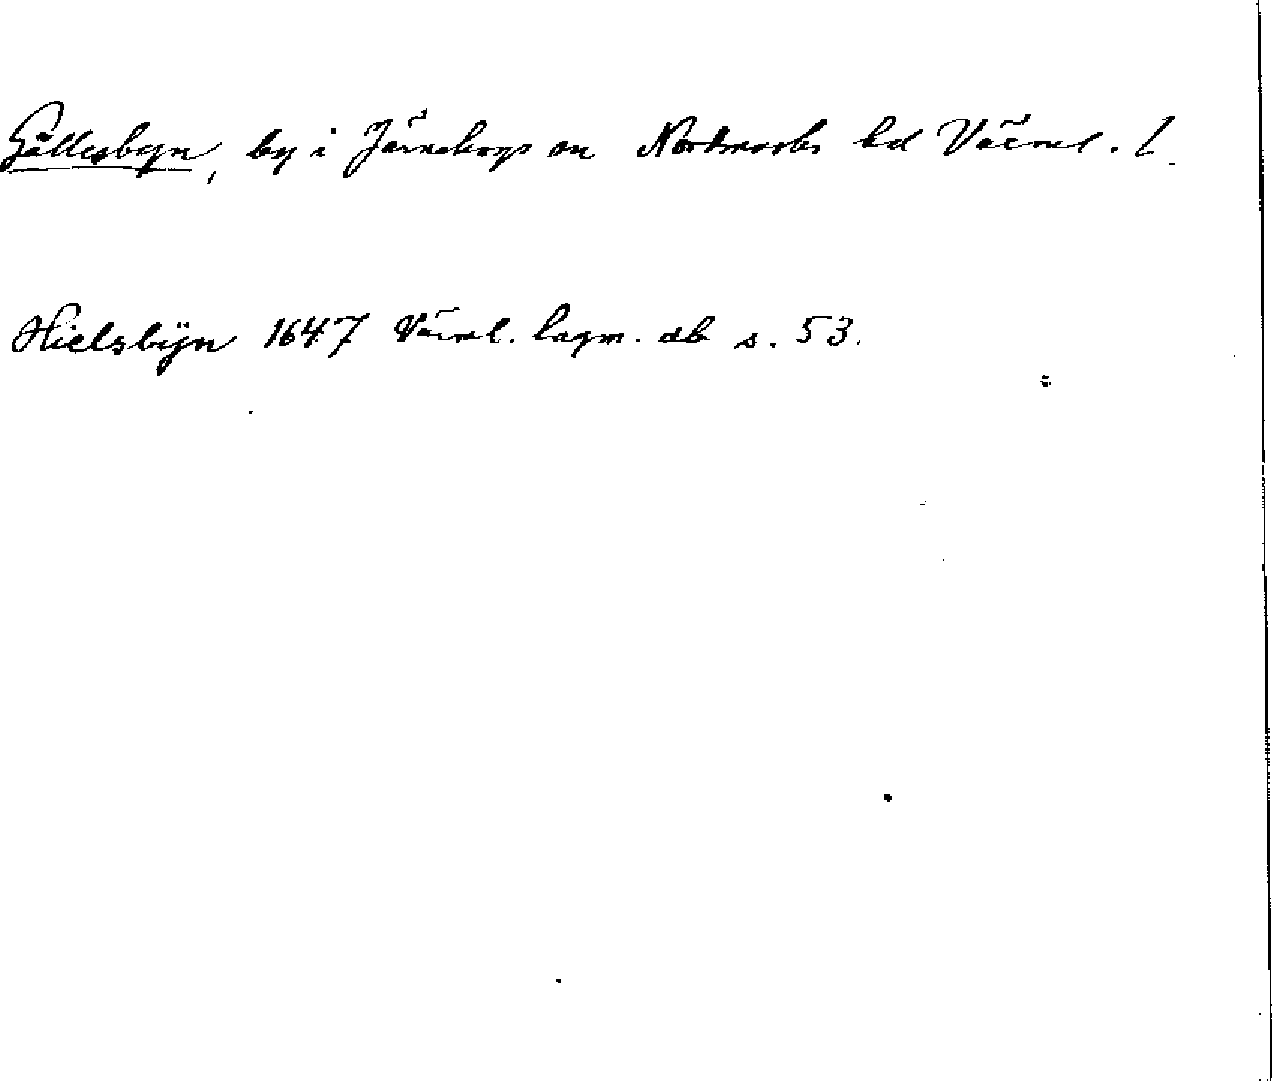 Gällesbyn, by i Järnskogs sn Nordmarks hd Värml. l.
Hielsbÿn 1647 Värml. lagm. db s. 53.